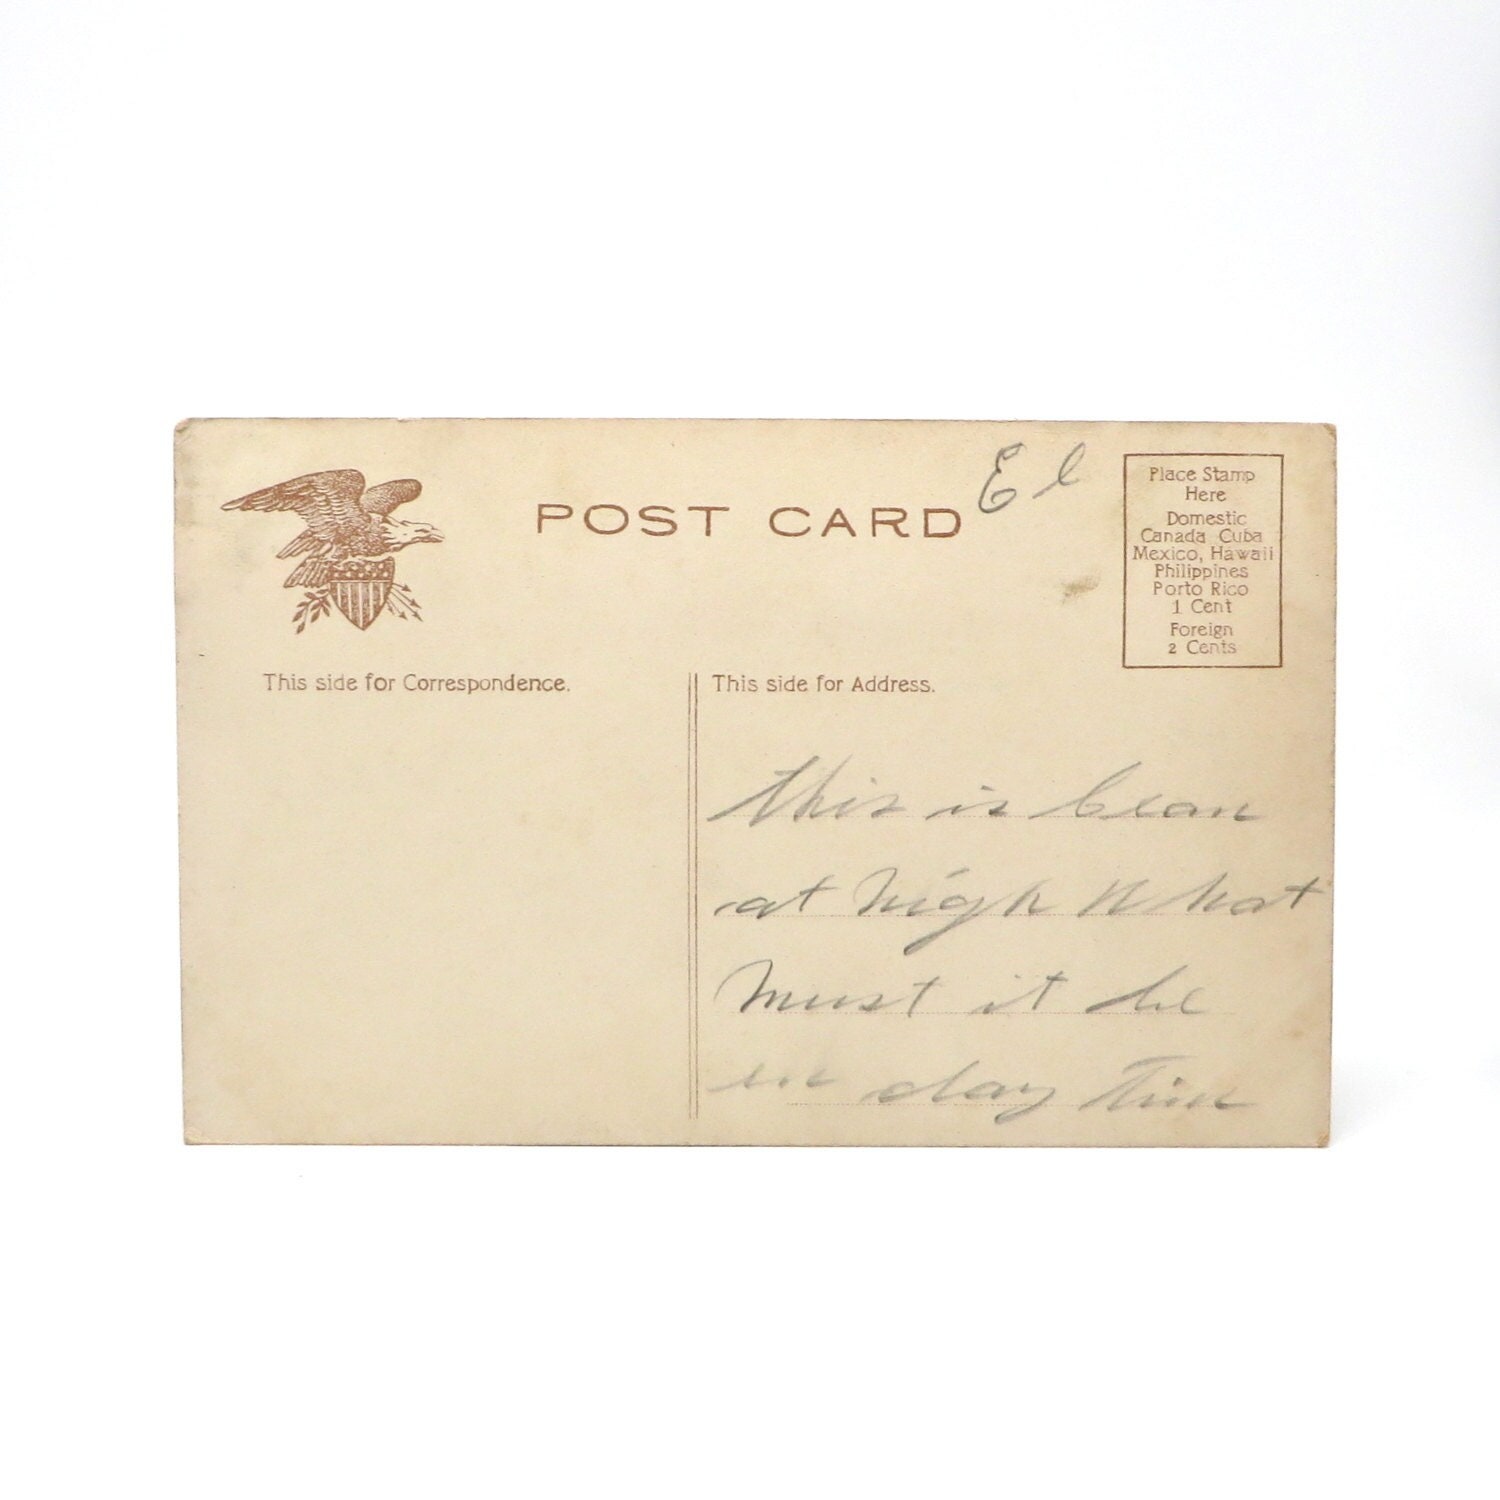 POST CARD
El
Place Stamp
Here
Domestic
Canada Cuba
Mexico, Hawaii
Philippines
Porto Rico
1 Cent
Foreign
2 Cents
This side for Correspondence.
This side for Address.
this is
at nigh What
Must it be
in day Time